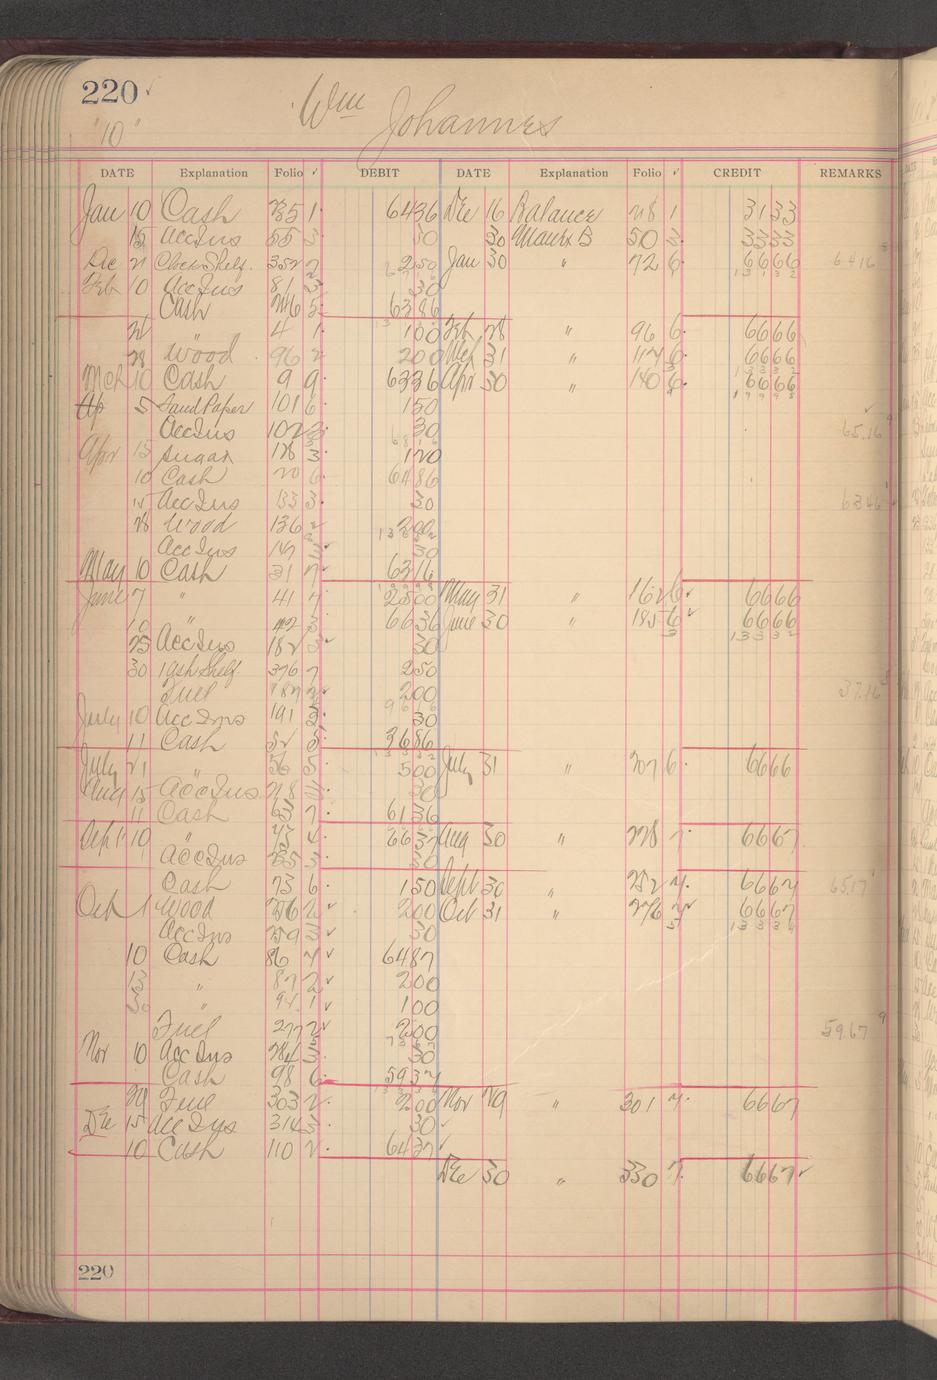 220
"10"
Wm Johannes
DATE Explanation Folio ✓ DEBIT DATE Explanation Folio ✓ CREDIT REMARKS
Jan 10 Cash 1 6436 Dec 16 Balance 1 3133
15 Acc Ins 55 3 30 30 50 3 3333
Dec 21 Clock Shelf 352 2 250 Jan 30 " 72 6 6666 64 16
Feb 10 Acc Ins 81 3 30
Cash 5 6386
" 4 1 100 Feb 28 " 96 6 6666
28 Wood 96 2 200 Mch 31 " 6 6666
Mch 10 Cash 9 9 6336 Apr 30 " 140 6 6666
Ap 5 Sand Paper 101 6 150
Acc Ins 102 3 30 65.16
Apr 15 Sugar 128 3 120
10 Cash 20 6 6486
15 Acc Ins 133 3 30 63 46
28 Wood 136 2 200
Acc Ins 30
May 10 Cash 31 7 6316
June 7 " 41 7 2500 May 31 " 162 6 6666
10 " 42 3 6636 June 30 " 185 6 6666
25 Acc Ins 182 3 30
30 Shelf 376 7 250
Fuel 187 2 200 37.16
July 10 Acc Ins 191 3 30
11 Cash 52 5 3686
July 21 " 56 5 500 July 31 " 207 6 6666
Aug 15 Acc Ins 218 3 30
11 Cash 63 7 6136
Sept 10 " 73 4 6637 Aug 30 " 228 7 6667
Acc Ins 235 3 30
Cash 73 6 150 Sept 30 " 252 7 6667 65.17
Oct 1 Wood 256 2 200 Oct 31 " 276 7 6667
Acc Ins 259 3 30
10 Cash 86 7 6487
13 " 87 2 200
30 " 94 1 100
Fuel 277 2 200 59.67
Nov 10 Acc Ins 284 3 30
Cash 98 6 5937
29 Fuel 303 2 200 Nov 29 " 301 7 6667
Dec 15 Acc Ins 314 3 30
10 Cash 110 2 6437
Dec 30 " 330 7 6667
220